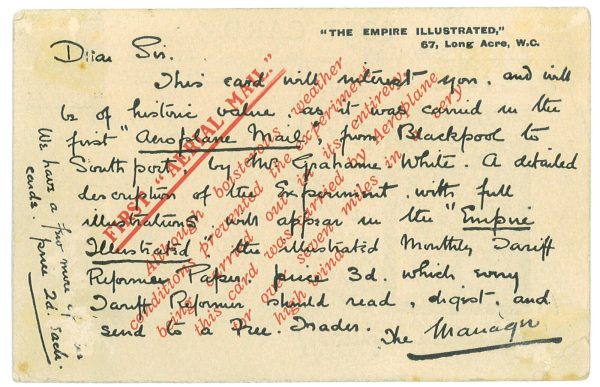 "THE EMPIRE ILLUSTRATED,"
67, Long Acre, W.C.
Dear Sir.
This card will interest you, and will
be of historic value, as it was carried in the
first "Aeroplane Mail", from Blackpool to
Southport, by Mr Grahame White. A detailed
description of the Experiment, with full
illustrations will appear in the "Empire
Illustrated" the illustrated Monthly Tariff
Reformer Paper, price 3d. which every
Tariff Reformer should read, digest, and
send to a Free Trader.
The Manager
FIRST "AERIAL MAIL."
Although boisterous weather
conditions prevented the experiment
being carried out in its entirety,
this card was carried by Aeroplane
for over seven miles in a very
high wind.
We have a few more of
cards. price 2d. each.